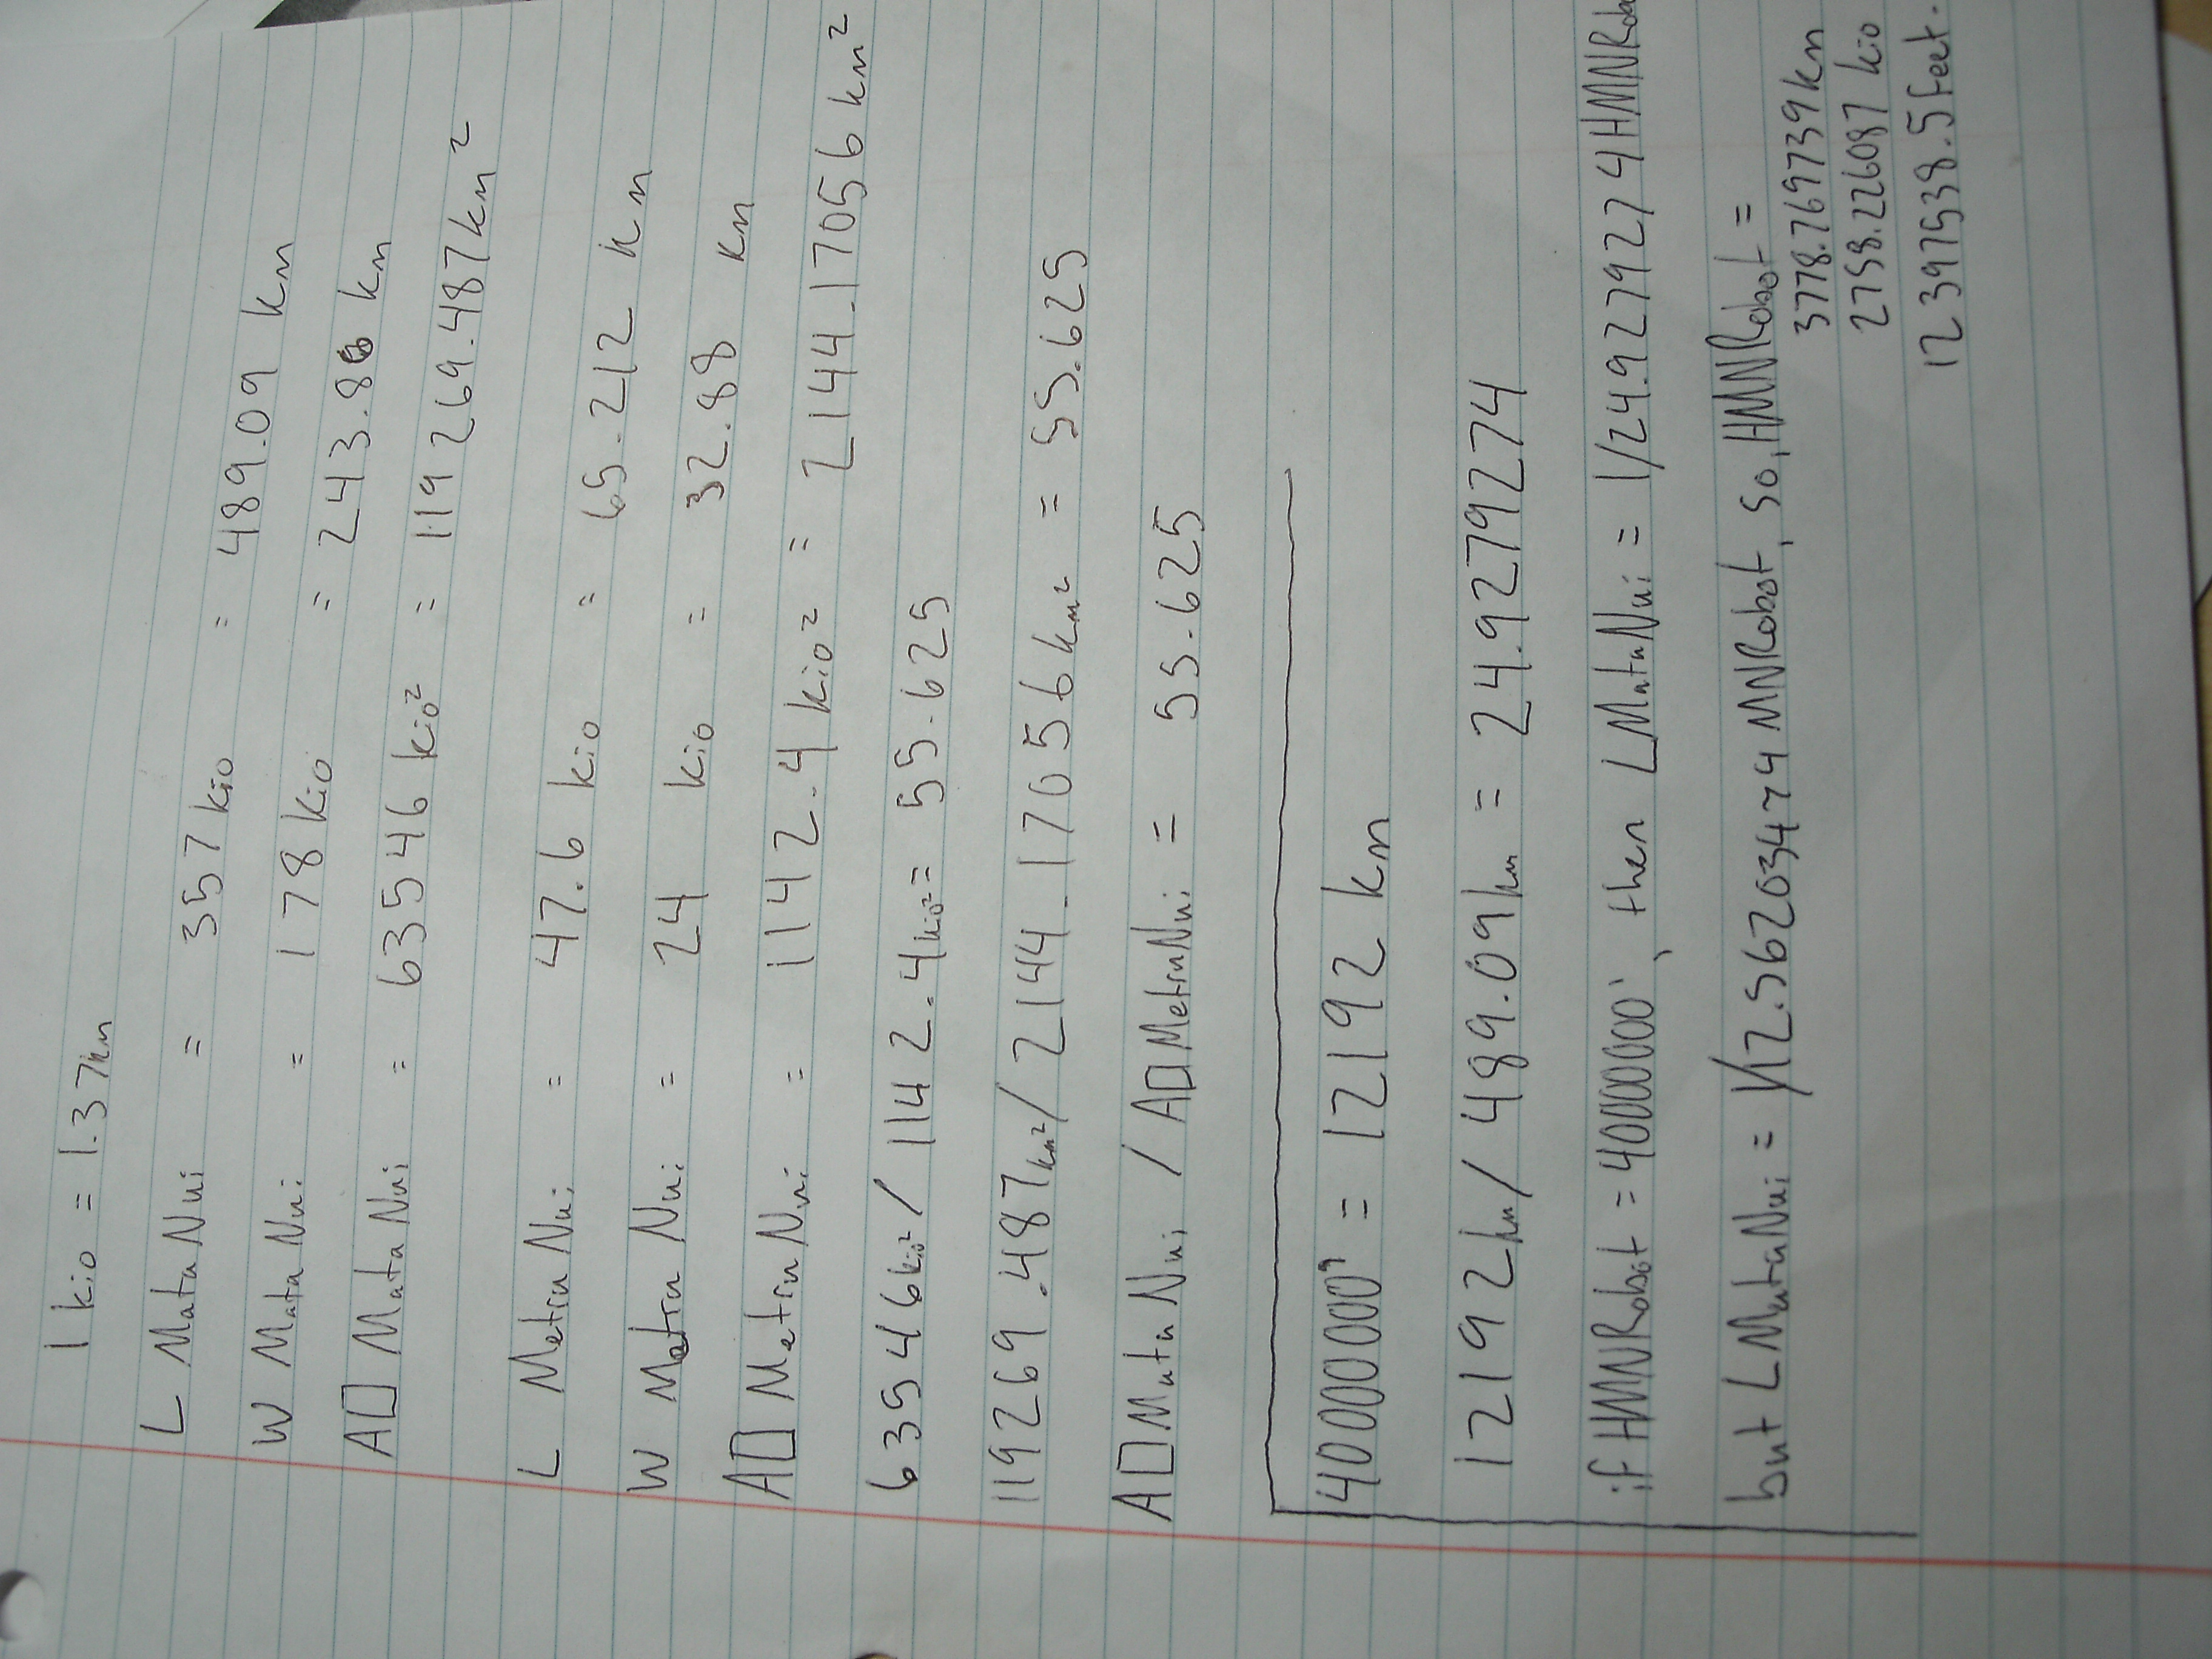 1 kio = 1.37km
L Mata Nui = 357 kio = 489.09 km
W Mata Nui = 178 kio = 243.86 km
A□ Mata Nui = 63546 kio² = 119269.487 km²
L Metru Nui = 47.6 kio = 65.212 km
W Metru Nui = 24 kio = 32.88 km
A□ Metru Nui = 1142.4 kio² = 2144.17056 km²
63546 kio² / 1142.4 kio² = 55.625
119269.487 km² / 2144.17056 km² = 55.625
A□ Mata Nui / A□ Metru Nui = 55.625
40000000' = 12192 km
12192 km / 489.09 km = 24.9279274
if HMNRobot = 40000000', then LMataNui = 1/24.9279274 HMNRobot
but LMataNui = 1/12.56203474 MNRobot, so, HMNRobot =
3778.769739 km
2758.226087 kio
12397538.5 feet.